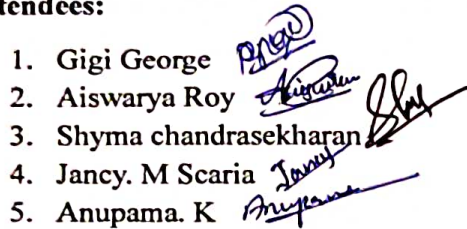 tendees:
1. Gigi George
2. Aiswarya Roy
3. Shyma chandrasekharan Shy
4. Jancy. M Scaria Jancy
5. Anupama. K Anupama